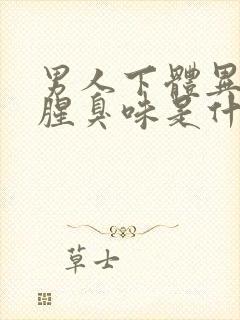 男人下體異
腥臭味是什
草士